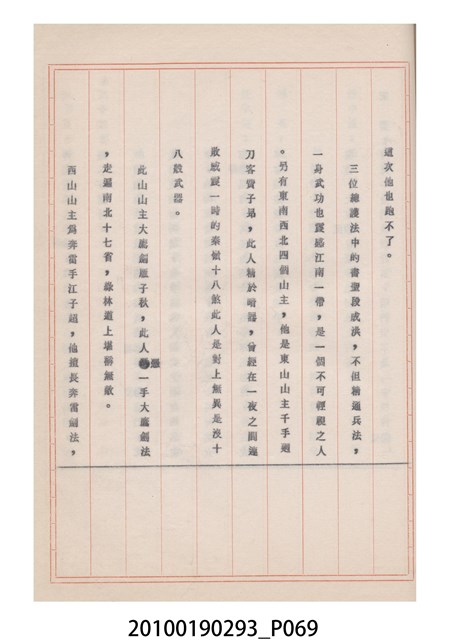 這次他也跑不了。
三位總護法中的書聖段成洪，不但精通兵法，
一身武功也震撼江南一帶，是一個不可輕視之人
。另有東南西北四個山主，他是東山山主千手追
刀客賈子昂，此人精於暗器，曾經在一夜之間連
敗威震一時的秦嶺十八煞此人是對上無異是沒十
八般武器。
此山山主大鷹劍雁子秋，此人憑一手大鷹劍法
，走遍南北十七省，綠林道上堪稱無敵。
西山山主為奔雷手江子超，他擅長奔雷劍法，
20100190293_P069